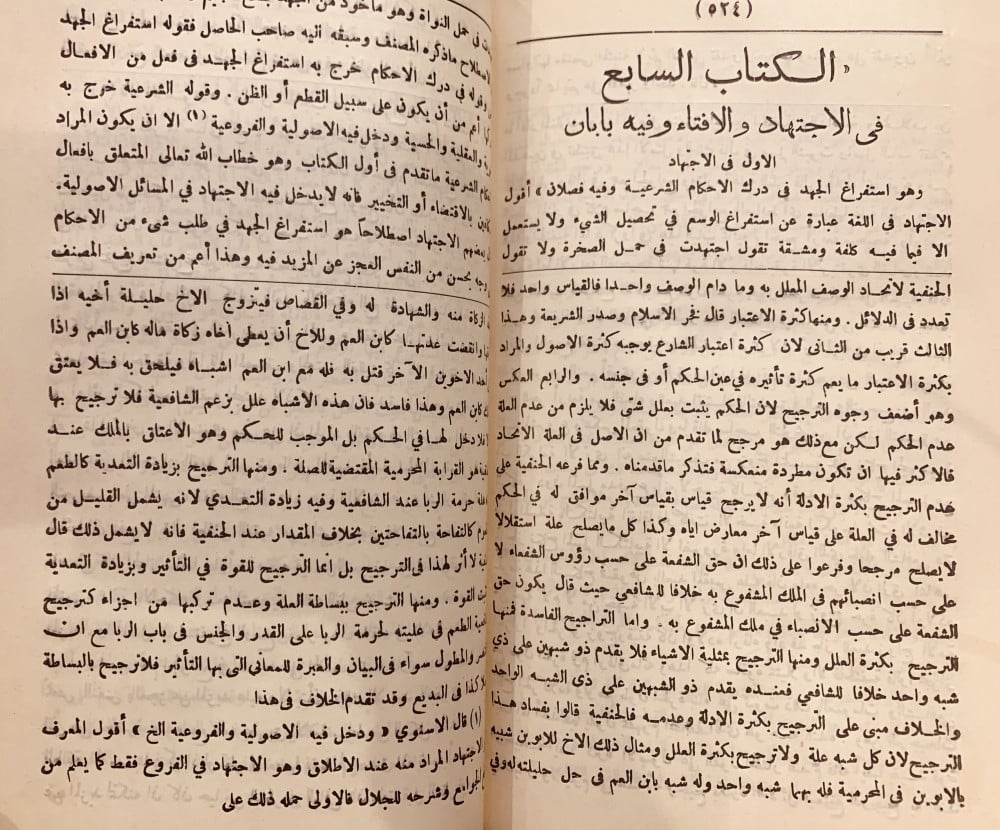 (٥٢٤)
« الكتاب السابع
في الاجتهاد والافتاء وفيه بابان
الاول فى الاجتهاد
وهو استفراغ الجهد فى درك الاحكام الشرعية وفيه فصلان » أقول
الاجتهاد فى اللغة عبارة عن استفراغ الوسع في تحصيل الشيء ولا يستعمل
الا فيما فيه كلفة ومشقة تقول اجتهدت في حمل الصخرة ولا تقول
الحنفية لاتحاد الوصف المعلل به وما دام الوصف واحدا فالقياس واحد فلا
تعدد فى الدلائل . ومنها كثرة الاعتبار قال فخر الاسلام وصدر الشريعة وهذا
الثالث قريب من الثانى لان كثرة اعتبار الشارع يوجبه كثرة الاصول والمراد
بكثرة الاعتبار ما يعم كثرة تأثيره في عين الحكم أو فى جنسه . والرابع العكس
وهو أضعف وجوه الترجيح لان الحكم يثبت بعلل شتى فلا يلزم من عدم العلة
عدم الحكم لكن مع ذلك هو مرجح لما تقدم من ان الاصل فى العلة الاتحاد
فالاكثر فيها ان تكون مطردة منعكسة فتذكر ماقدمناه . ومما فرعه الحنفية على
عدم الترجيح بكثرة الادلة أنه لا يرجح قياس بقياس آخر موافق له في الحكم
مخالف له في العلة على قياس آخر معارض اياه وكذا كل ما يصلح علة استقلالا
لا يصلح مرجحا وفرعوا على ذلك ان حق الشفعة على حسب رؤوس الشفعاء لا
على حسب انصبائهم فى الملك المشفوع به خلافا للشافعي حيث قال يكون حق
الشفعة على حسب الانصباء في ملك المشفوع به . واما التراجيح الفاسدة فمنها
الترجيح بكثرة العلل ومنها الترجيح بمثلية الاشياء فلا يقدم ذو شبهين على ذي
شبه واحد خلافا للشافعي فعنده يقدم ذو الشبهين على ذي الشبه الواحد
والخلاف مبنى على الترجيح بكثرة الادلة وعدمه فالحنفية قالوا بفساد هذا
الترجيح لان كل شبه علة ولا ترجيح بكثرة العلل ومثال ذلك الاخ للابوين شبيه
بالابوين فى المحرمية فله بهما شبه واحد وله شبه بابن العم فى حل حليلته له وفي
فى حمل النواة وهو مأخوذ من الجهد
ماذكره المصنف وسبقه اليه صاحب الحاصل فقوله استفراغ الجهد
وقوله في درك الاحكام خرج به استفراغ الجهد فى فعل من الافعال
أعم من أن يكون على سبيل القطع أو الظن . وقوله الشرعية خرج به
والعقلية والحسية ودخل فيه الاصولية والفروعية (١) الا ان يكون المراد
الشرعية ماتقدم فى أول الكتاب وهو خطاب الله تعالى المتعلق بافعال
بالاقتضاء أو التخيير فانه لا يدخل فيه الاجتهاد في المسائل الاصولية.
بعضهم الاجتهاد اصطلاحاً هو استفراغ الجهد في طلب شىء من الاحكام
وجه يحسن من النفس العجز عن المزيد فيه وهذا أعم من تعريف المصنف
الزكاة منه والشهادة له وفي القصاص فيتزوج الاخ حليلة أخيه اذا
وانقضت عدتها كابن العم وللاخ أن يعطى أخاه زكاة ماله كابن العم واذا
أحد الاخوين الآخر قتل به فله مع ابن العم اشباه فيلحق به فلا يعتق
كابن العم وهذا فاسد فان هذه الاشباه علل بزعم الشافعية فلا ترجيح بها
لا دخل لها في الحكم بل الموجب للحكم وهو الاعتاق بالملك عند
هو القرابة المحرمية المقتضية للصلة . ومنها الترجيح بزيادة التعدية كالطعم
حرمة الربا عند الشافعية وفيه زيادة التعدي لانه يشمل القليل من
كالتفاحة بالتفاحتين بخلاف المقدار عند الحنفية فانه لا يشمل ذلك قال
لا أثر لهذا فى الترجيح بل انما الترجيح للقوة في التأثير وبزيادة التعدية
القوة . ومنها الترجيح ببساطة العلة وعدم تركبها من اجزاء كترجيح
الطعم فى عليته لحرمة الربا على القدر والجنس فى باب الربا مع ان
والمطول سواء فى البيان والعبرة للمعانى التى بها التأثير فلا ترجيح بالبساطة
كذا فى البديع وقد تقدم الخلاف فى هذا
(١) قال الاسنوي « ودخل فيه الاصولية والفروعية الخ » أقول المعرف
الاجتهاد المراد منه عند الاطلاق وهو الاجتهاد في الفروع فقط كما يعلم من
وشرحه للجلال فالاولى حمله ذلك على